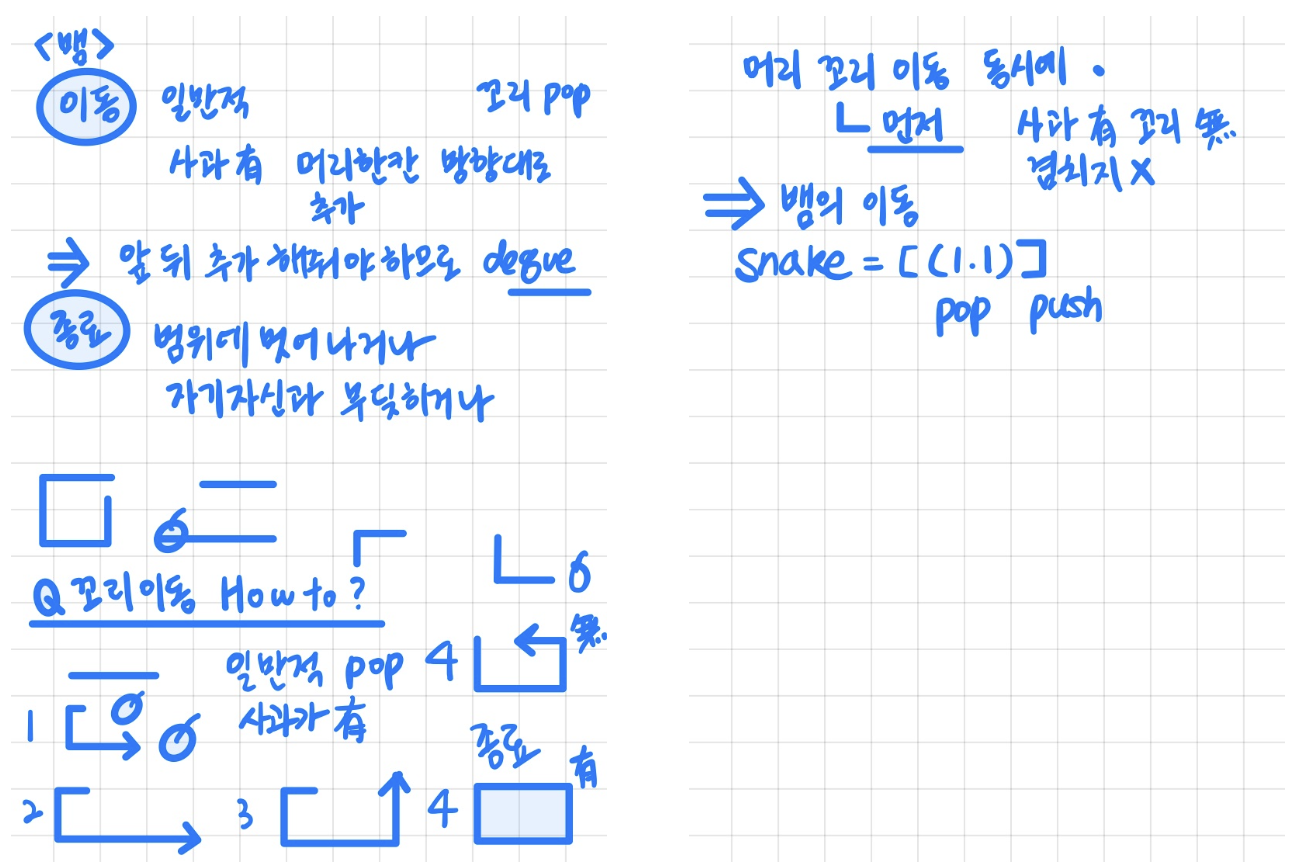 <뱀>
이동 일반적 꼬리 pop
사과 有 머리한칸 방향대로
추가
⇒ 앞 뒤 추가 해줘야하므로 deque
종료 범위에 벗어나거나
자기자신과 부딪하거나
Q 꼬리이동 How to?
일반적 pop 4 無
1 사과가 有
종료 有
2 3 4
머리 꼬리 이동 동시에 •
먼저 사과 有 꼬리 無
겹치지 X
⇒ 뱀의 이동
snake = [(1.1)]
pop push